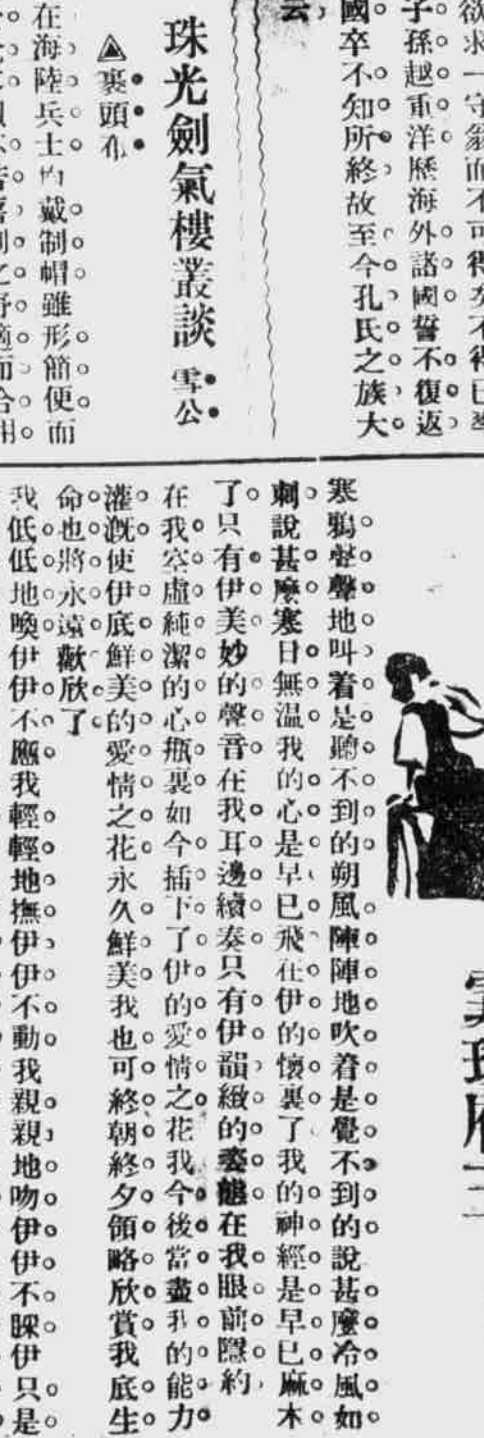 欲求一守
子孫越重洋歷海外諸國誓不復返
國卒不知所終故至今孔氏之族大
云
珠光劍氣樓叢談 雪公
▲裹頭布
在海陸兵士均戴制帽雖形簡便而
寒鴉聲聲地叫着是聽不到的朔風陣陣地吹着是覺不到的說甚麼冷風如
刺說甚麼寒日無溫我的心是早已飛在伊的懷裏了我的神經是早已麻木
了只有伊美妙的聲音在我耳邊續奏只有伊韻緻的姿態在我眼前隱約
在我空虛純潔的心瓶裏如今插下了伊的愛情之花我今後當盡我的能力
灌溉使伊底鮮美的愛情之花永久鮮美我也可終朝終夕領略欣賞我底生
命也將永遠歡欣了
我低低地喚伊伊不應我輕輕地撫伊伊不動我親親地吻伊伊不睬伊只是